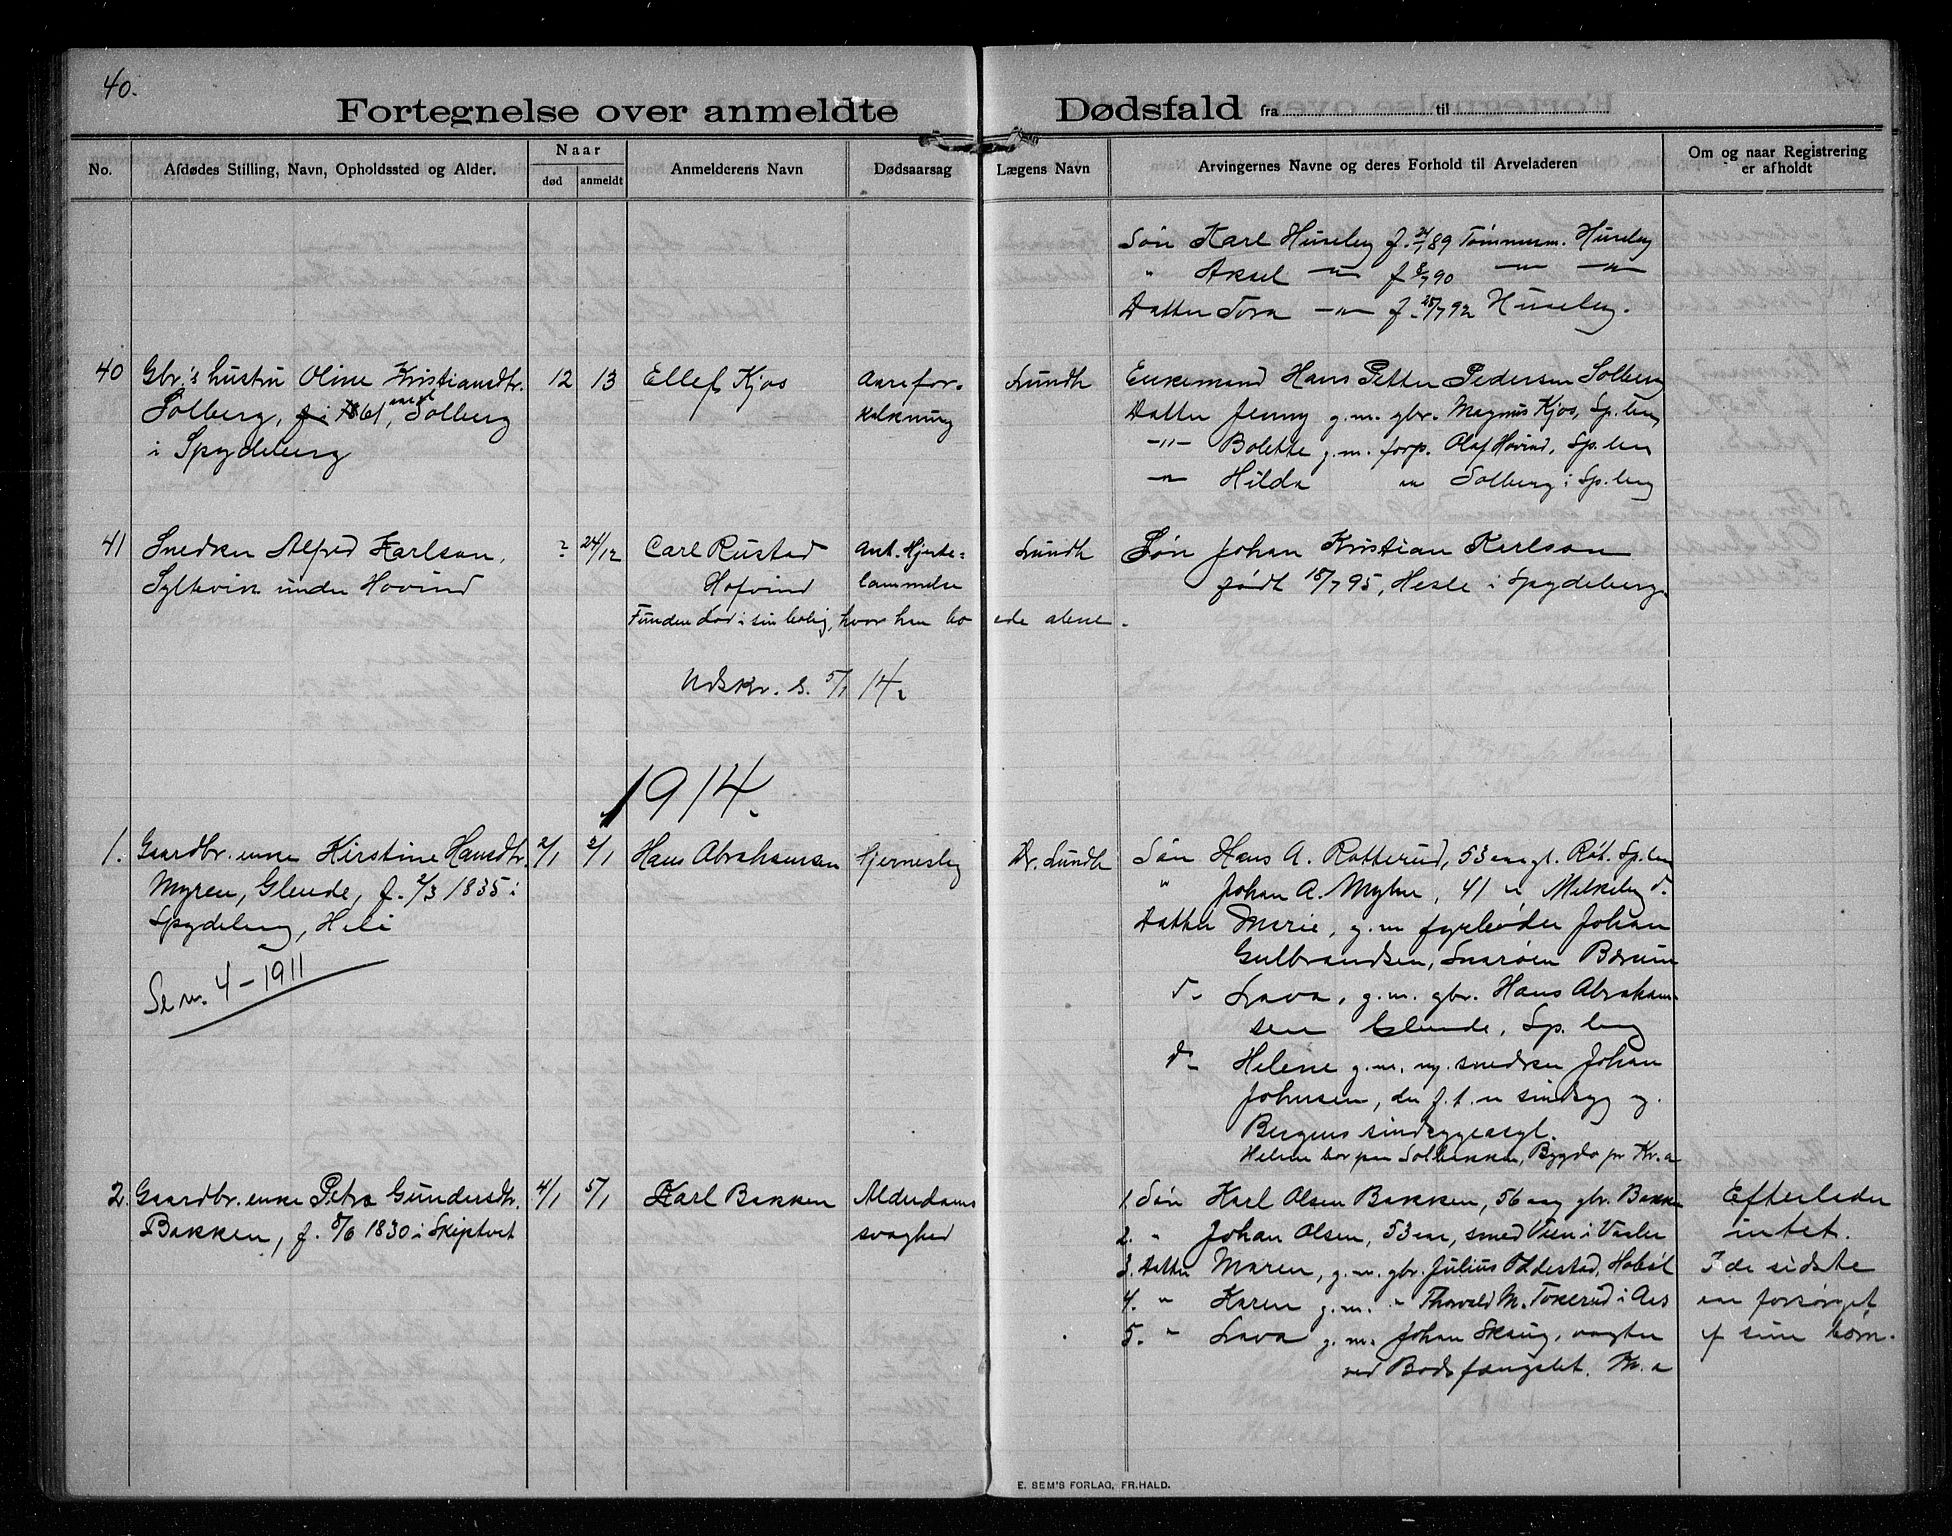 40.
Fortegnelse over anmeldte Dødsfald fra til
No.
Afdødes Stilling, Navn, Opholdssted og Alder.
Naar
død
anmeldt
Anmelderens Navn
Dødsaarsag
Lægens Navn
Arvingernes Navne og deres Forhold til Arveladeren
Om og naar Registrering
er afholdt
Søn Karl Huseby f. 89 Tømmerm. Huseby
" Aksel —"— f 8/7 90 —"— —"—
Datter Tora —"— f. 25/7 92 Huseby.
40 Gbr.'s hustru Oline Kristiansdtr. 12 13 Ellef Kjos Aarefor- Lundh
Solberg, 61 aar gl Solberg kalkning
i Spydeberg
Enkemand Hans Petter Pedersen Solberg
Datter Jenny g.m. gbr. Magnus Kjos, Sp.berg
—"— Bolette g.m. forp. Olaf Hovind, Sp.berg
—"— Hilda Solberg i Sp.berg
41 Snedker Alfred Karlson, ? 24/12 Carl Rustad Ant. Hjerte- Lundh
Syltevik under Hovind Hofvind lammelse
Funden død i sin bolig, hvor han boede alene.
Søn Johan Kristian Karlson
født 18/7 95, Hesle i Spydeberg.
Udskr. s. 5/1 14.
1914.
1. Gaardbr. enke Kirstine Hansdtr. 2/1 2/1 Hans Abrahamsen Hjerneslag Dr. Lundh
Myren, Glende, f. 2/3 1835 i
Spydeberg, Heli
Se nr. 4 - 1911
Søn Hans A. Rotterud, 53 aar gl. Røt. Sp.berg
" Johan A. Myhre, 41 " Melkeby do
Datter Marie, g.m fyrbøder Johan
Gulbrandsen, Snarøen Bærum
do Lava, g.m. gbr. Hans Abraham-
sen Glende, Sp.berg
do Helene g.m. snedker Johan
Johnsen, der f.t. er sindsyg
Bergens sindsygeasyl.
Helene bor paa Solbakken, Bygdø pr Kr.a
2. Gaardbr. enke Petra Gundersdtr. 4/1 5/1 Karl Bakken Alderdoms
Bakken, f. 5/6 1830 i Skiptvet svaghed
1. Søn Karl Olsen Bakken, 56 aar gbr. Bakken
2. " Johan Olsen, 53 aar, smed Vien i Vaaler
3. Datter Maren, g.m. gbr. Julius Oldestad, Hobøl
4. " Karen g.m. " Thorvald M. Tokerud i Aas
5. " Lava g.m. Johan Skaug, vagter
ved Bodsfængslet. Kr.a
Efterlader
intet.
I de sidste
aar forsørget
af sine børn.
E. SEM'S FORLAG, FR.HALD.